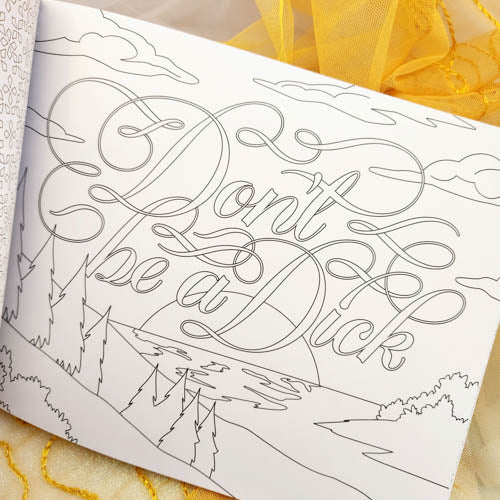 Don't
be a Dick